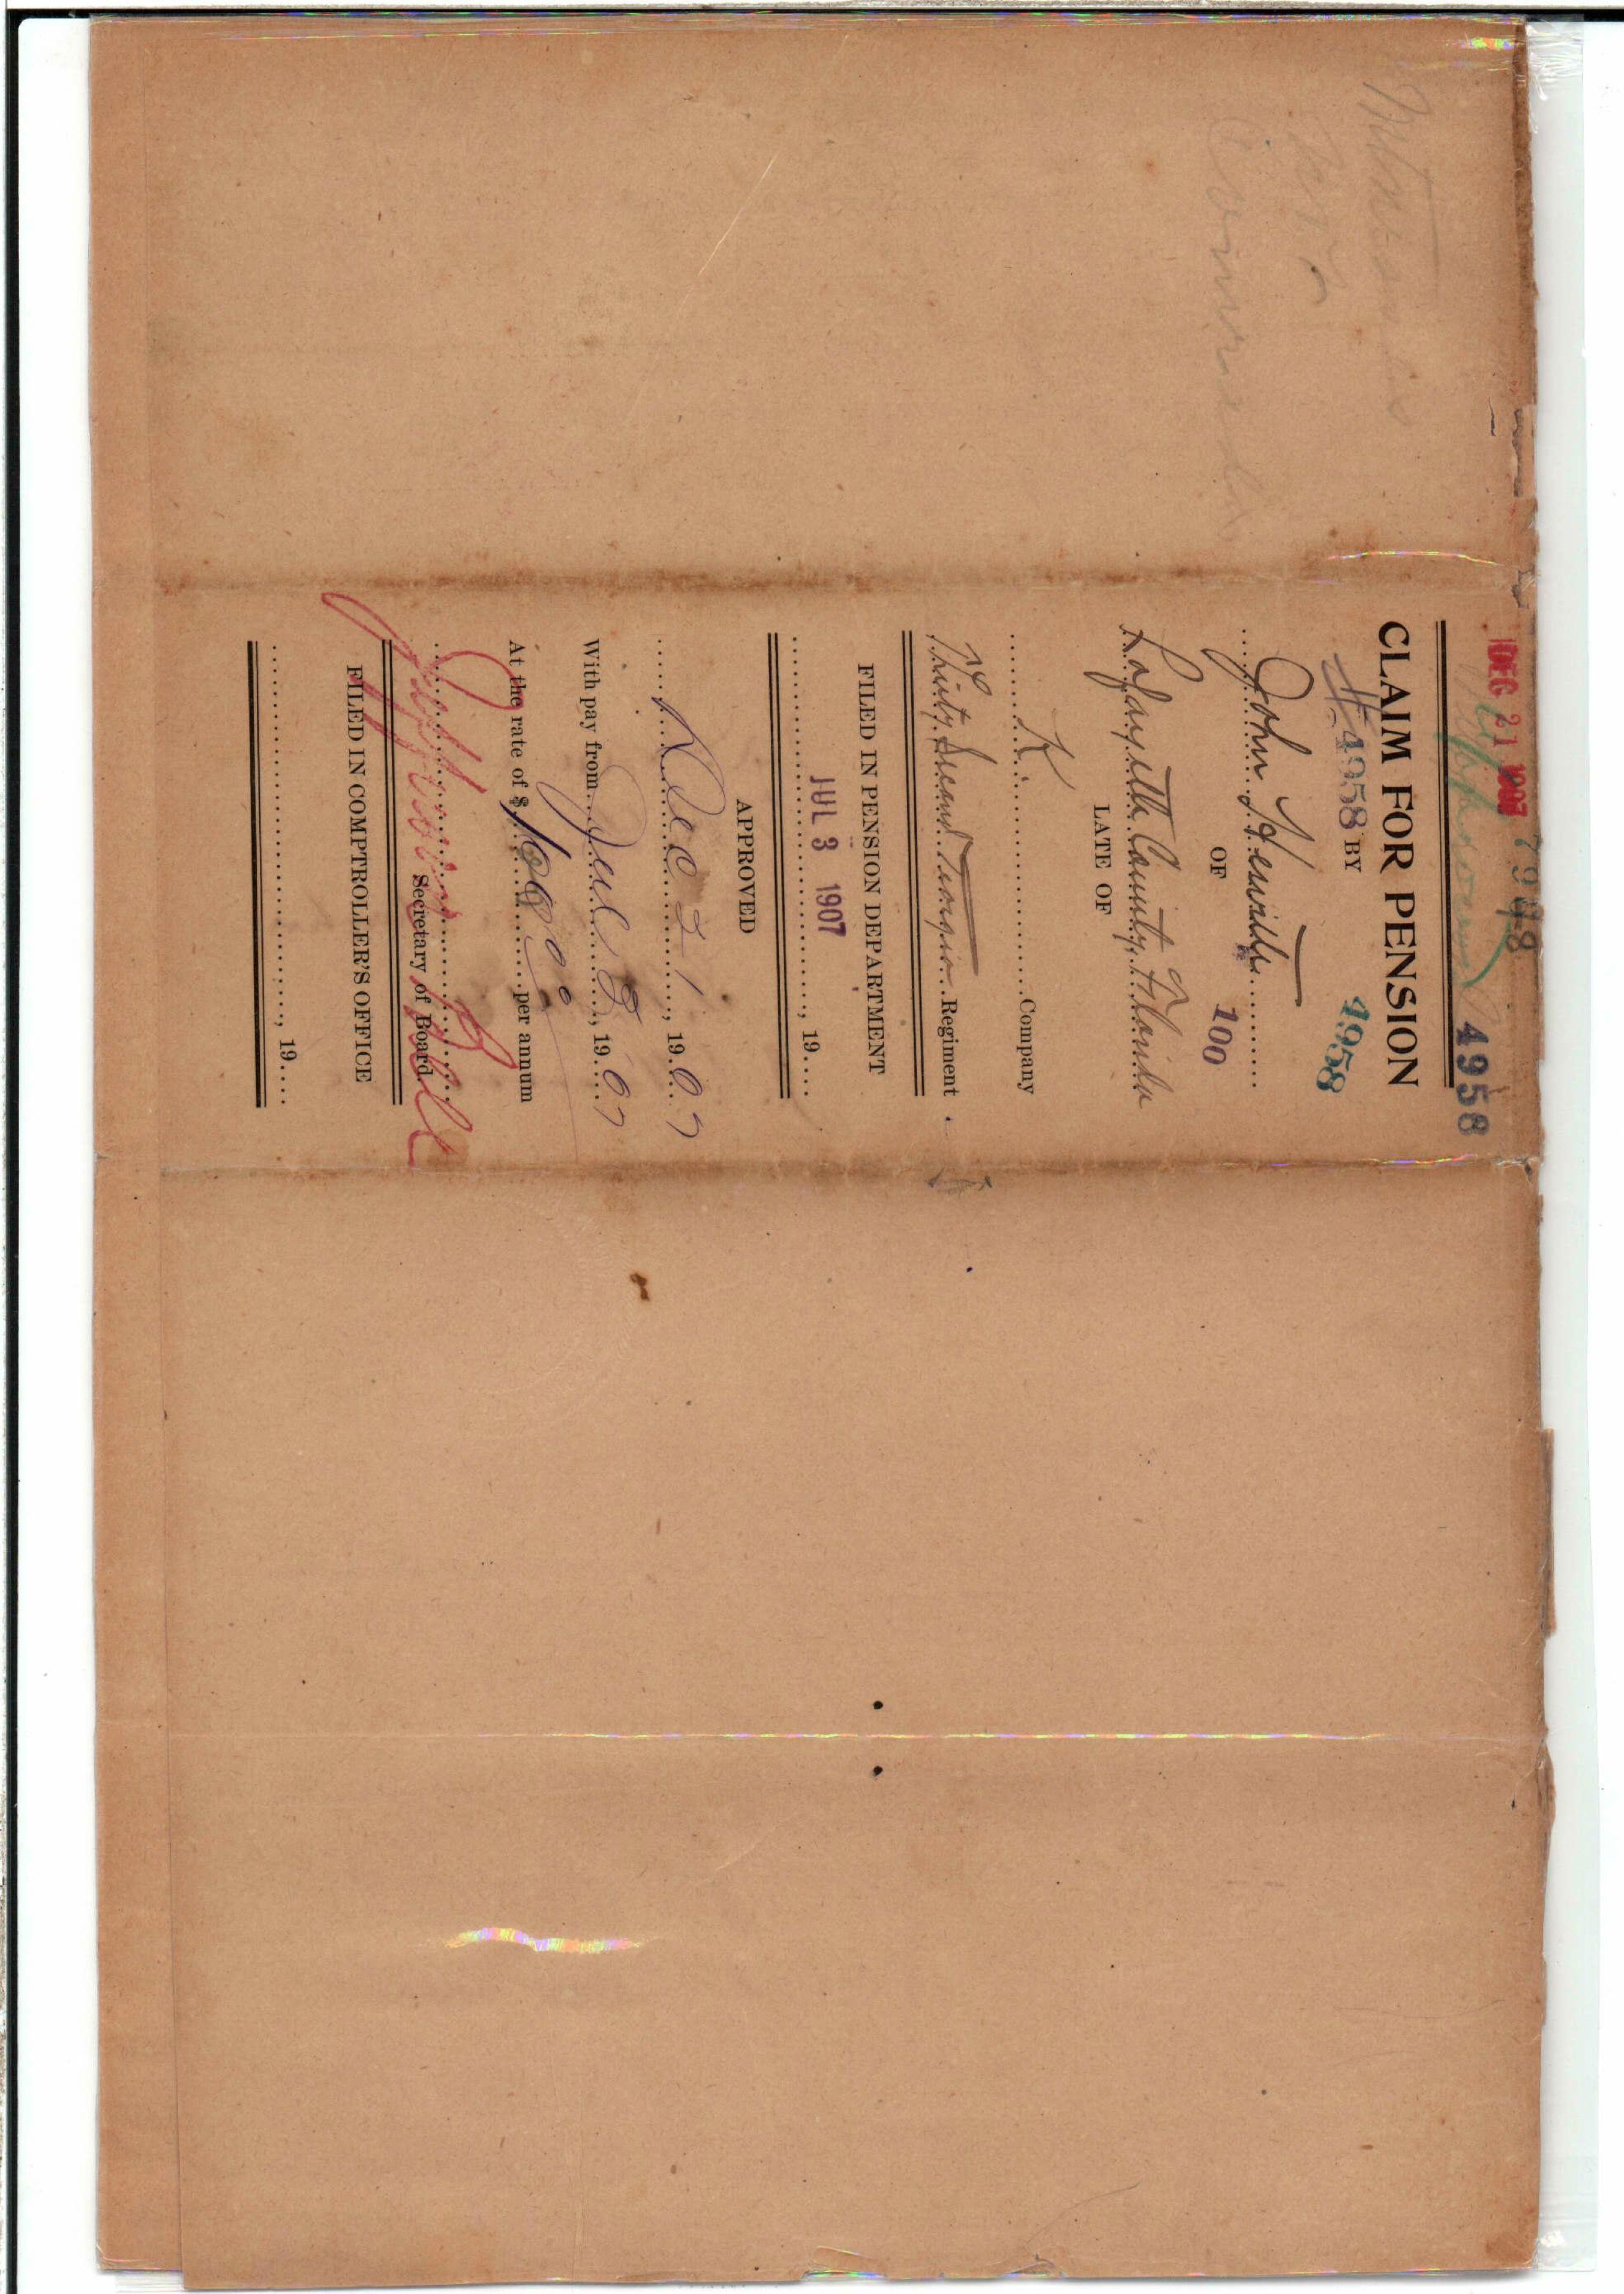 DEC 21 1907 7948
4958
CLAIM FOR PENSION
#4958 BY 4958
John Hewitt
OF 100
Lafayette County, Florida
LATE OF
K Company
Thirty Second Georgia Regiment
FILED IN PENSION DEPARTMENT
JUL 3 1907, 19
APPROVED
Dec 21, 1907
With pay from Jul 3, 1907
At the rate of $100.00 per annum
Jefferson Bell
Secretary of Board
FILED IN COMPTROLLER'S OFFICE
, 19